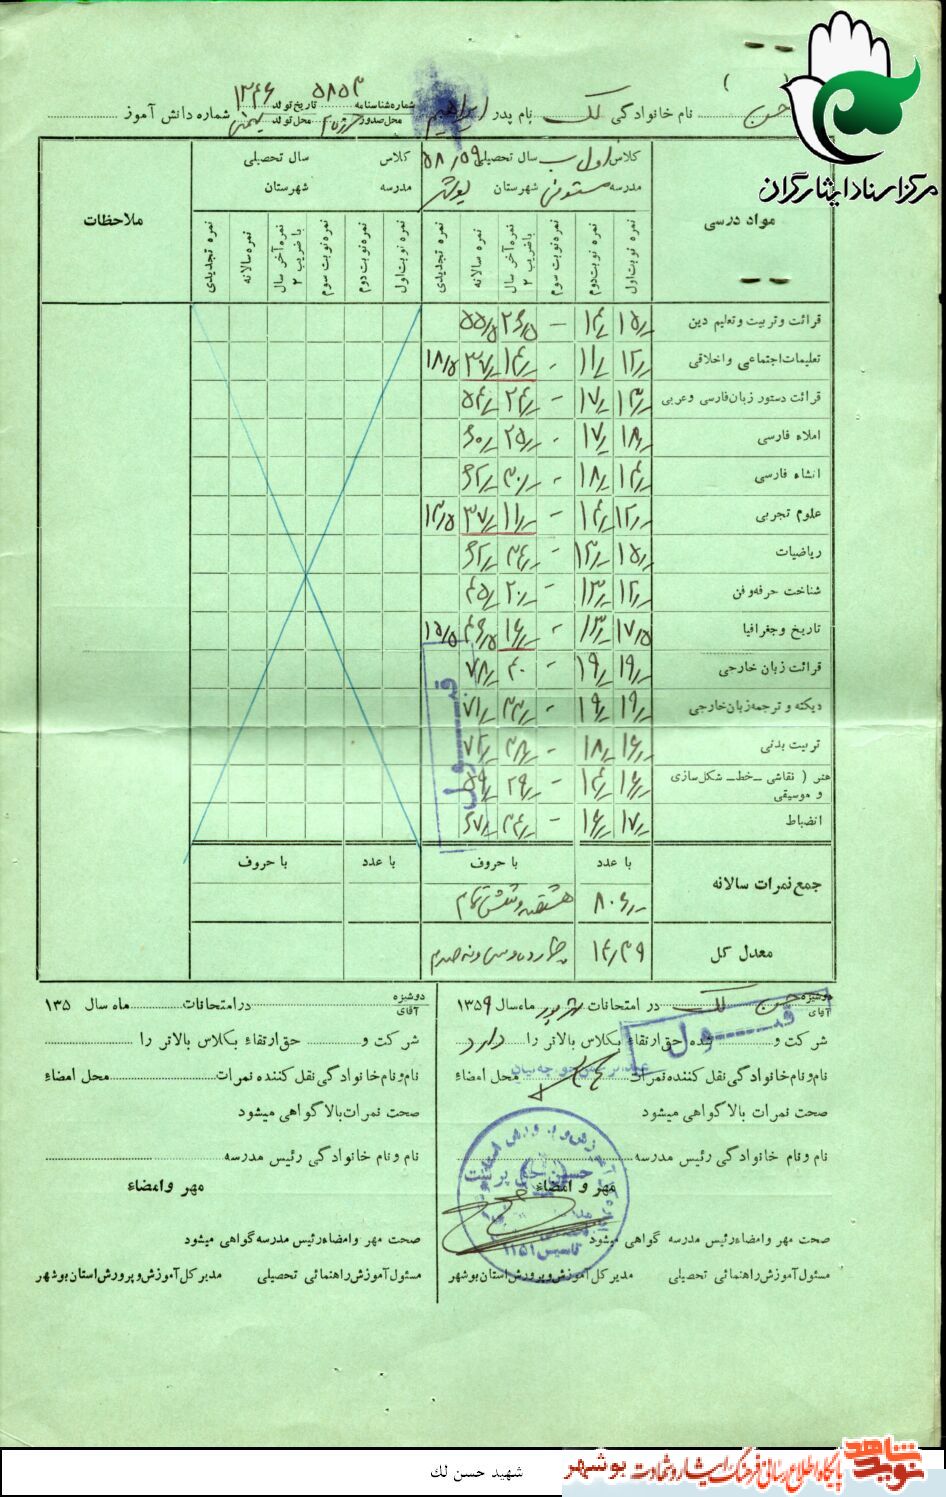 مرکز اسناد ایثارگران
نام خانوادگی لک نام پدر ابراهیم شماره شناسنامه ۵۸۵۳ تاریخ تولد ۱۳۴۶ شماره دانش آموز
محل صدور محل تولد
مواد درسی
کلاس اول ب سال تحصیلی ۵۸/۵۹
مدرسه شهرستان بوشهر
کلاس سال تحصیلی
مدرسه شهرستان
ملاحظات
نمره نوبت اول نمره نوبت دوم نمره نوبت سوم نمره آخر سال باضریب ۲ نمره سالانه نمره تجدیدی
نمره نوبت اول نمره نوبت دوم نمره نوبت سوم نمره آخر سال با ضریب ۲ نمره سالانه نمره تجدیدی
قرائت و تربیت و تعلیم دین ۱۵/ ۱۴/ - ۲۶/۵ ۵۵/۵
تعلیمات اجتماعی و اخلاقی ۱۲/ ۱۱/ - ۱۴/ ۳۷/ ۱۸/۵
قرائت دستور زبان فارسی و عربی ۱۳/ ۱۷/ - ۲۴/ ۵۴/
املاء فارسی ۱۸/ ۱۷/ - ۲۵/ ۶۰/
انشاء فارسی ۱۴/ ۱۸/ - ۳۰/ ۶۲/
علوم تجربی ۱۲/ ۱۴/ - ۱۱/ ۳۷/ ۱۳/۵
ریاضیات ۱۵/ ۱۳/ - ۳۴/ ۶۲/
شناخت حرفه و فن ۱۲/ ۱۳/ - ۲۰/ ۴۵/
تاریخ و جغرافیا ۱۷/۵ ۱۳/ - ۱۶/ ۴۶/۵ ۱۵/۵
قرائت زبان خارجی ۱۹/ ۱۹/ - ۴۰ ۷۸/
دیکته و ترجمه زبان خارجی ۱۹/ ۱۹/ - ۳۳/ ۷۱/
تربیت بدنی ۱۶/ ۱۸/ - ۳۸/ ۷۲/
هنر ( نقاشی ـ خط ـ شکل سازی و موسیقی ۱۶/ ۱۴/ - ۲۹/ ۵۹/
انضباط ۱۷/ ۱۶/ - ۳۴/ ۶۷/
قبـــول
جمع نمرات سالانه
با عدد با حروف با عدد با حروف
۸۰۶/ هشتصد و شش تمام
معدل کل ۱۴/۳۹ چهارده و سی و نه صدم
دوشیزه آقای حسن لک در امتحانات شهریور ماه سال ۱۳۵۹
قبـــول
شرکت و شده حق ارتقاء بکلاس بالاتر را دارد
نام و نام خانوادگی نقل کننده نمرات محل امضاء
صحت نمرات بالا گواهی میشود
نام و نام خانوادگی رئیس مدرسه
حسن حق پرست
مهر و امضاء
تاسیس
صحت مهر و امضاء رئیس مدرسه گواهی میشود
مسئول آموزش راهنمائی تحصیلی مدیر کل آموزش و پرورش استان بوشهر
دوشیزه آقای در امتحانات ماه سال ۱۳۵
شرکت و حق ارتقاء بکلاس بالاتر را
نام و نام خانوادگی نقل کننده نمرات محل امضاء
صحت نمرات بالا گواهی میشود
نام و نام خانوادگی رئیس مدرسه
مهر و امضاء
صحت مهر و امضاء رئیس مدرسه گواهی میشود
مسئول آموزش راهنمائی تحصیلی مدیر کل آموزش و پرورش استان بوشهر
شهید حسن لك
نوید شاهد پایگاه اطلاع رسانی فرهنگ ایثار و شهادت بوشهر